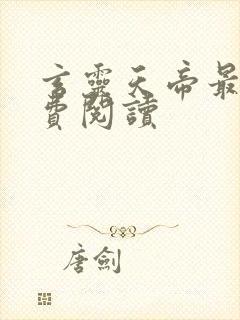 言靈天帝最
費閱讀
唐劍